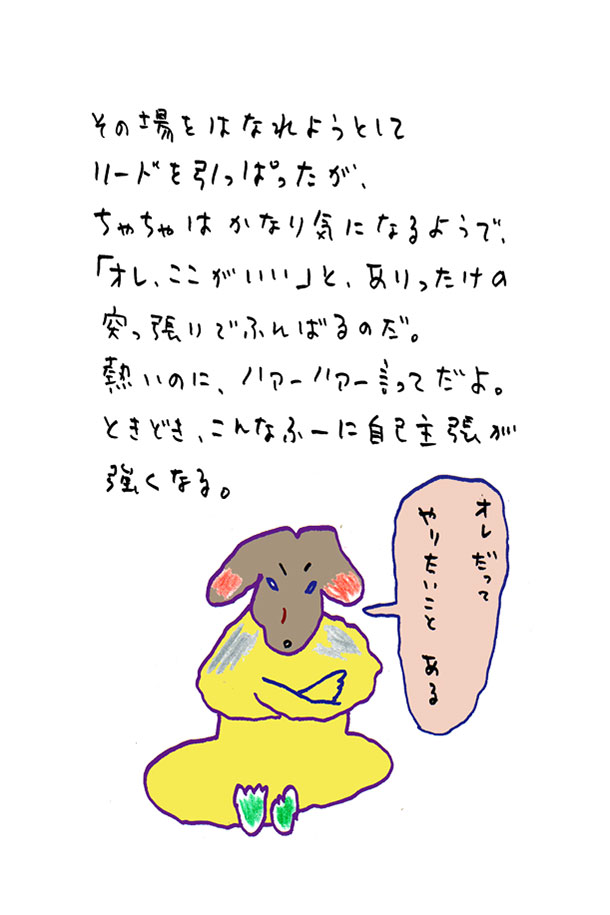 その場をはなれようとして
リードを引っぱったが、
ちゃちゃはかなり気になるようで、
「オレ、ここがいい」と、ありったけの
突っ張りでふんばるのだ。
熱いのに、ハァーハァー言ってだよ。
ときどき、こんなふーに自己主張が
強くなる。
オレだって
やりたいこと ある